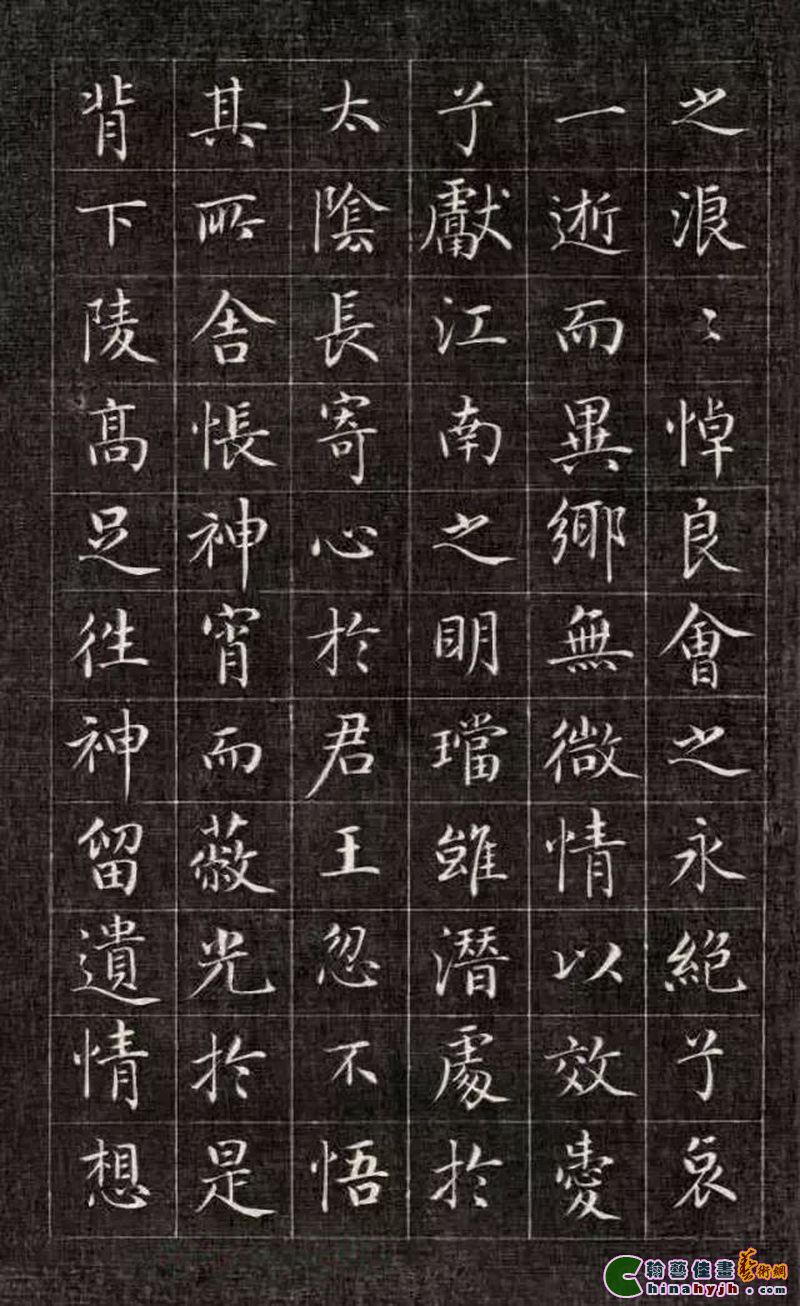 之浪〻悼良會之永絕兮哀
一逝而異鄉無微情以效愛
兮獻江南之明璫雖潛處於
太陰長寄心於君王忽不悟
其所舍悵神宵而蔽光於是
背下陵高足往神留遺情想
翰藝佳畫藝術網
Chinahyjh.com